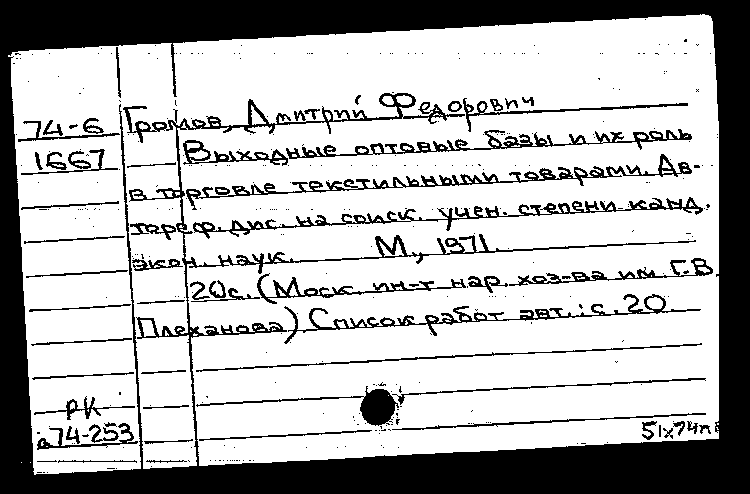 74-6 Громов, Дмитрий Федорович
1667 Выходные оптовые базы и их роль
в торговле текстильными товарами. Ав-
тореф. дис. на соиск. учен. степени канд.
экон. наук. М., 1971.
20с. (Моск. ин-т нар. хоз-ва им. Г.В.
Плеханова) Список работ авт.: с. 20.
РК
а74-253